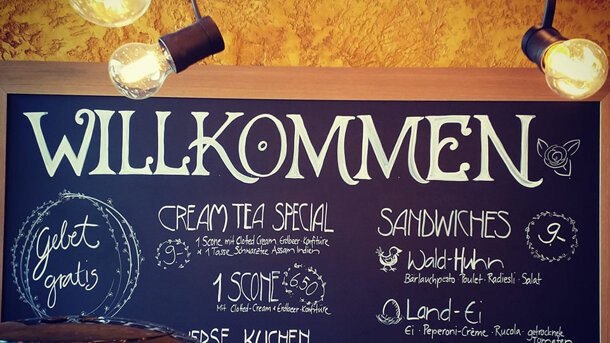 WILLKOMMEN
Gebet
gratis
CREAM TEA SPECIAL
1 Scone mit Clotted Cream Erdbeer-Konfitüre
9.-
1 Tasse Schwarztee Assam Indien
1 SCONE 6.50
Mit Clotted-Cream & Erdbeer-Konfitüre
KUCHEN
SANDWICHES
9.-
Wald-Huhn
Bärlauchpesto · Poulet · Radiesli · Salat
Land-Ei
Ei · Peperoni-Crème · Rucola · getrocknete
Tomaten